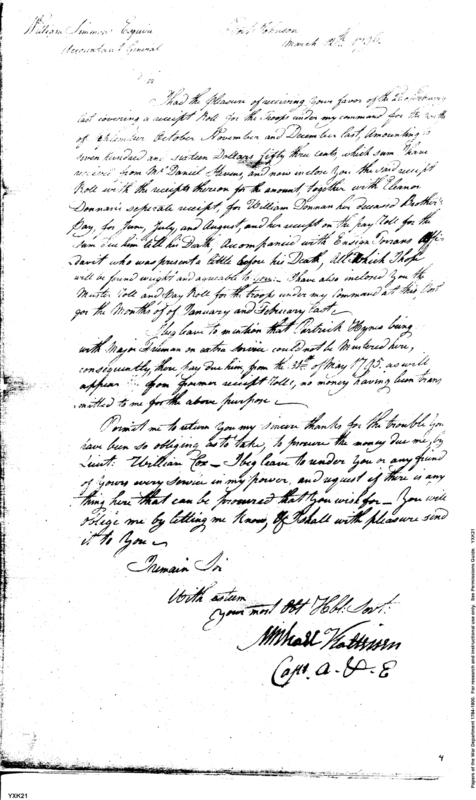 William Simmons Esquire
Fort Johnson
Accountant General
March 1796
Sir
I had the Pleasure of receiving your favor of the
last covering a receipt Roll for the Troops under my command for the
of September October November and December last, Amounting to
Seven hundred and sixteen Dollars fifty three cents, which sum I have
received from Mr. Daniel Stevens, and now inclose you the said receipt
Roll with the receipts thereon for the amount, together with Eleanor
Donnan's seperate receipt, for William Donnan her deceased Brother's
Pay, for June, July, and August, and her receipt on the pay Roll for the
sum due him till his Death, Accompanied with Ensign
davit who was present a little before his Death, All which I hope
will be found right and agreeable to you. I have also inclosed you the
Muster Roll and Pay Roll for the troops under my Command at this Post
for the Months of January and February last.
I beg leave to mention that Patrick Hynes being
with Major Freeman on extra service could not be Mustered here,
consequently, there pay due him from the of May 1795, as will
appear from former receipt Rolls, no money having been trans
mitted to me for the above purpose
Permit me to return you my sincere thanks for the trouble you
have been so obliging as to take, to procure the money due me by
Lieut: William Cox — I beg leave to render you or any friend
of yours every service in my power, and request if there is any
thing here that can be procured that you wish for — You will
oblige me by letting me know, & I shall with pleasure send
it to you
I remain Sir
With esteem
Your most Obt Hbl: Servt:
Michael Kalteisen
Capt. A. & E
4
YXK21
Papers of the War Department 1784-1800. For research and instructional use only. See Permissions Guide. YXK21